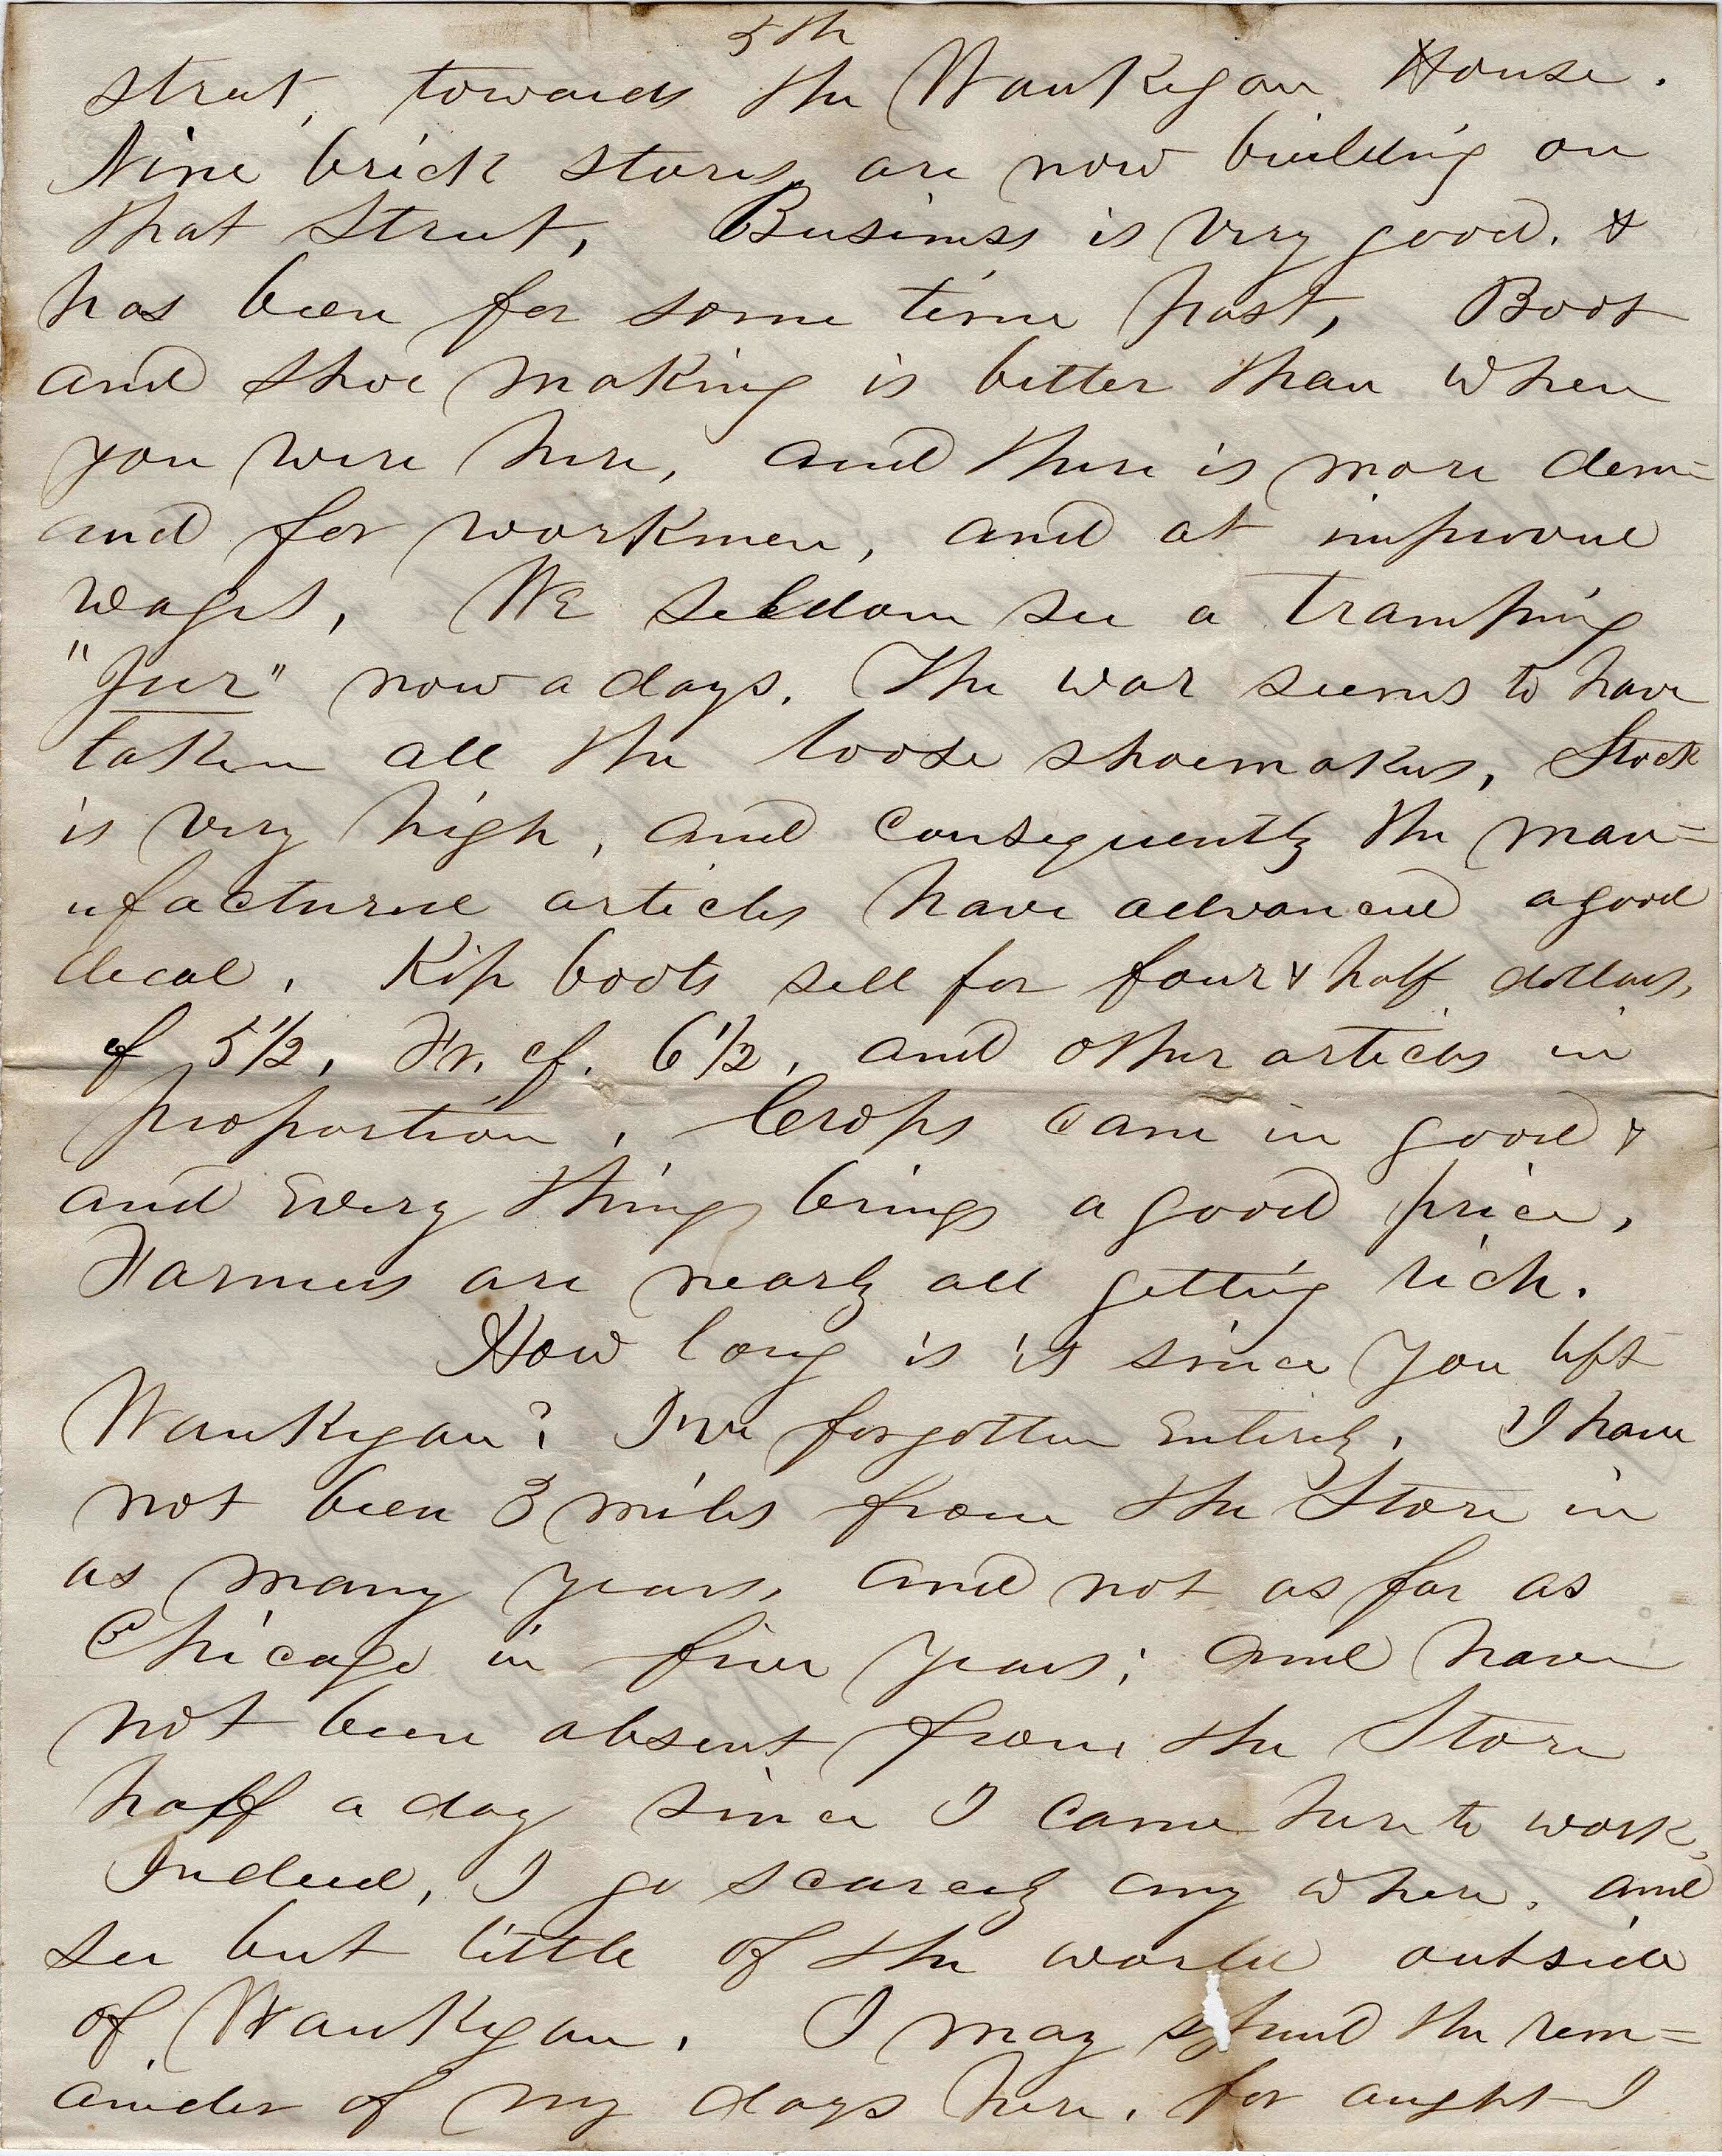 5th
street, towards the Waukegan House.
Nine brick stores, are now building on
that Street, Business is very good, &
has been for some time past, Boot
and shoe making is better than when
you were here, and there is more dem=
and for workmen, and at improved
wages, We seldom see a tramping
"Jur" now a days. The war seems to have
taken all the loose shoemakers, Stock
is very high, and consequently the man=
ufactured articles have advanced a good
deal. Kip boots sell for four & half dollars,
cf 5 1/2, Fr. cf. 6 1/2, and other articles in
proportion, Crops came in good &
and every thing brings a good price,
Farmers are nearly all getting rich.
How long is it since you left
Waukegan? I've forgotten entirely. I have
not been 3 miles from the Store in
as many years, and not as far as
Chicago in five years; and have
not been absent from the Store
half a day since I came here to work,
Indeed, I go scarcely any where, and
see but little of the world outside
of Waukegan. I may spend the rem=
ainder of my days here, for aught I